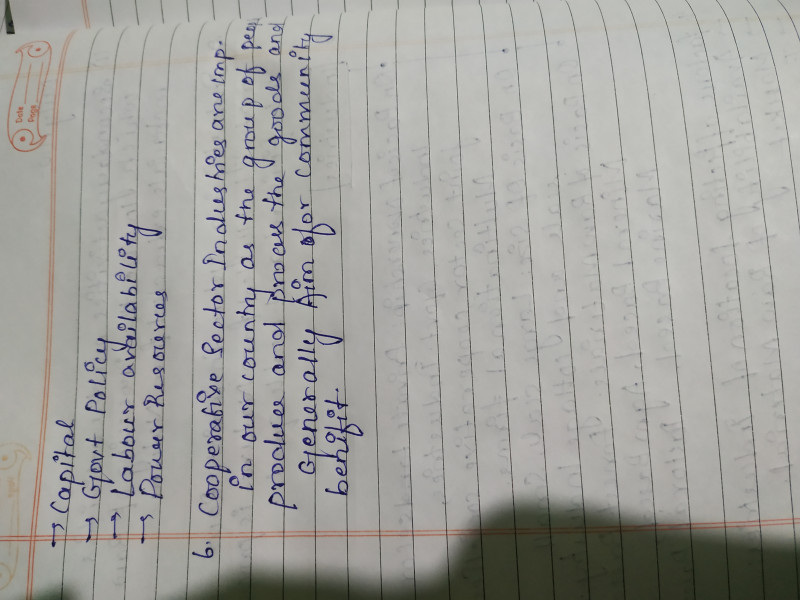 Date
Page
→ Capital
→ Govt Policy
→ Labour availability
→ Power Resources
6. Cooperative Sector Industries are imp.
in our country as the group of
produce and process the goods and
Generally Aim for community
benifit.